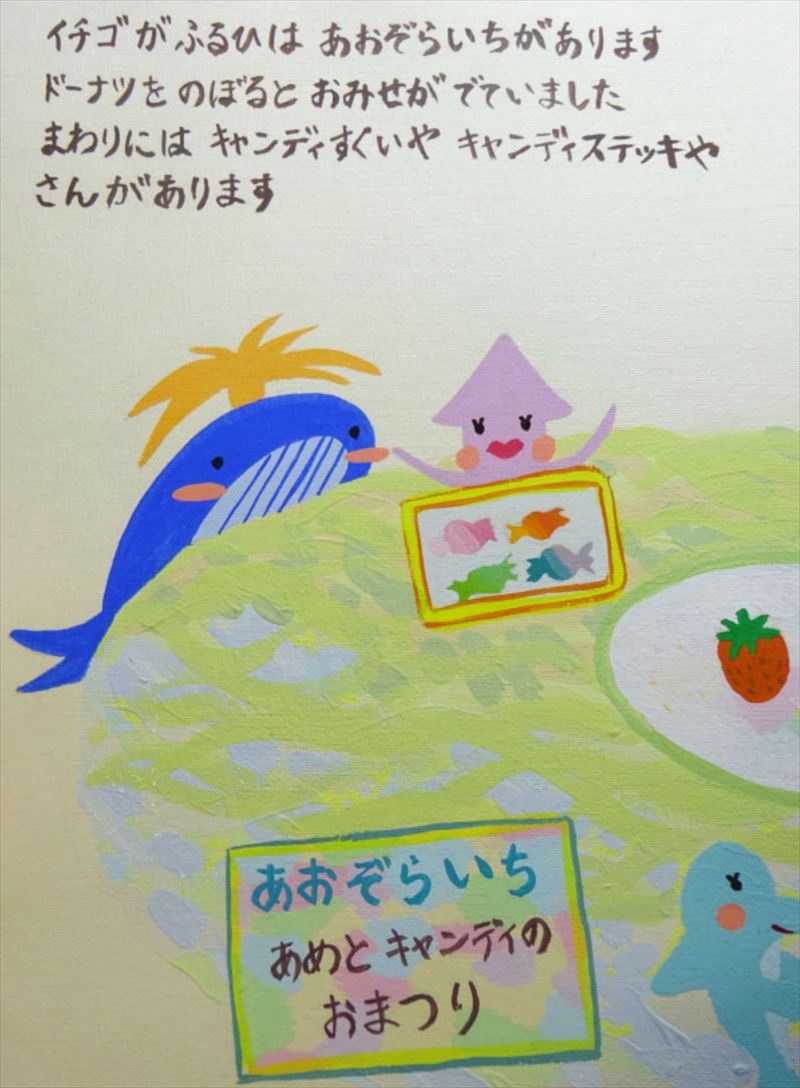 イチゴがふるひは あおぞらいちがあります
ドーナツを のぼると おみせが でていました
まわりには キャンディすくいや キャンディステッキや
さんがあります
あおぞらいち
あめと キャンディの
おまつり